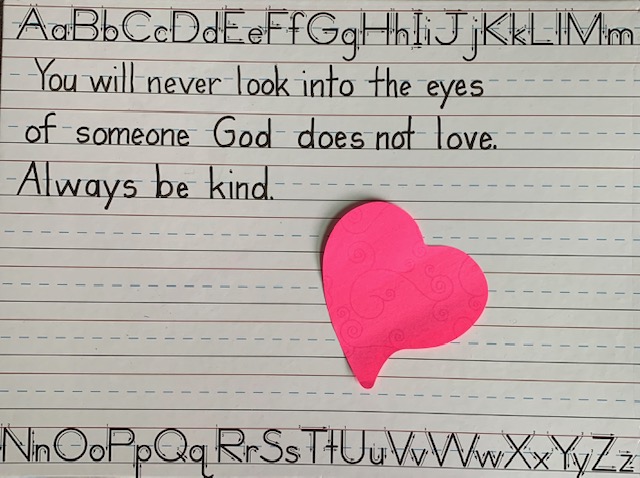 AaBbCcDdEeFfGgHhIiJjKkLlMm
You will never look into the eyes
of someone God does not love.
Always be kind.
NnOoPpQqRrSsTtUuVvWwXxYyZz